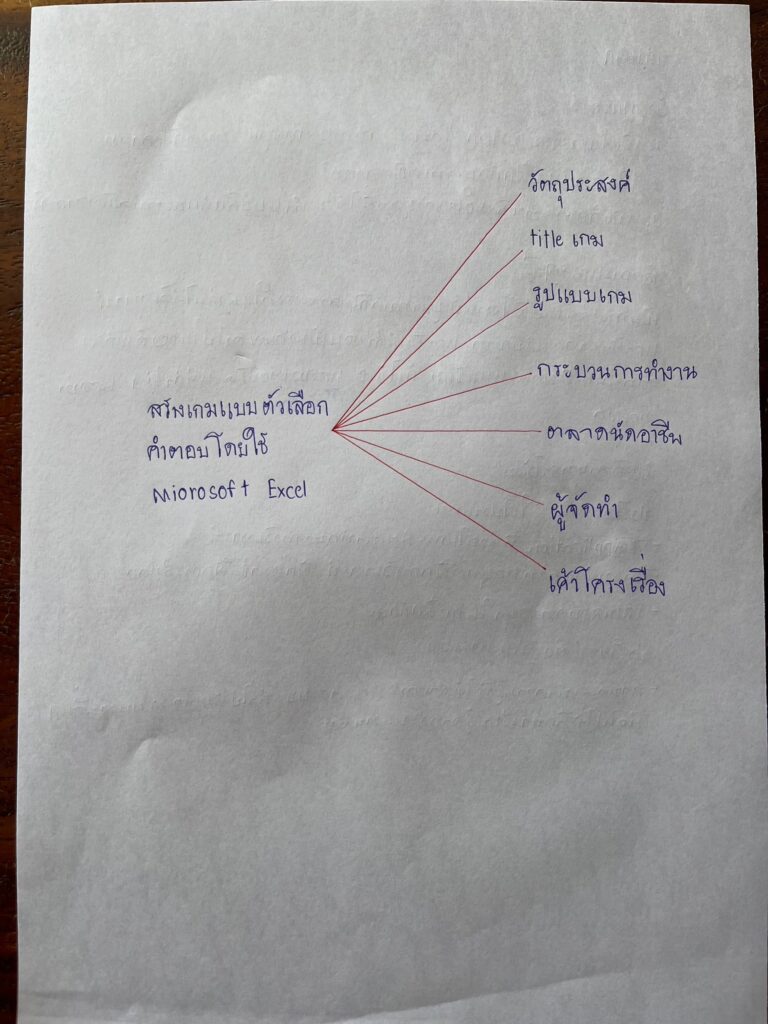 วัตถุประสงค์
title เกม
รูปแบบเกม
กระบวนการทำงาน
สร้างเกมแบบตัวเลือก
คำตอบโดยใช้
Miorosoft Excel
ตลาดนัดอาชีพ
ผู้จัดทำ
เค้าโครงเรื่อง